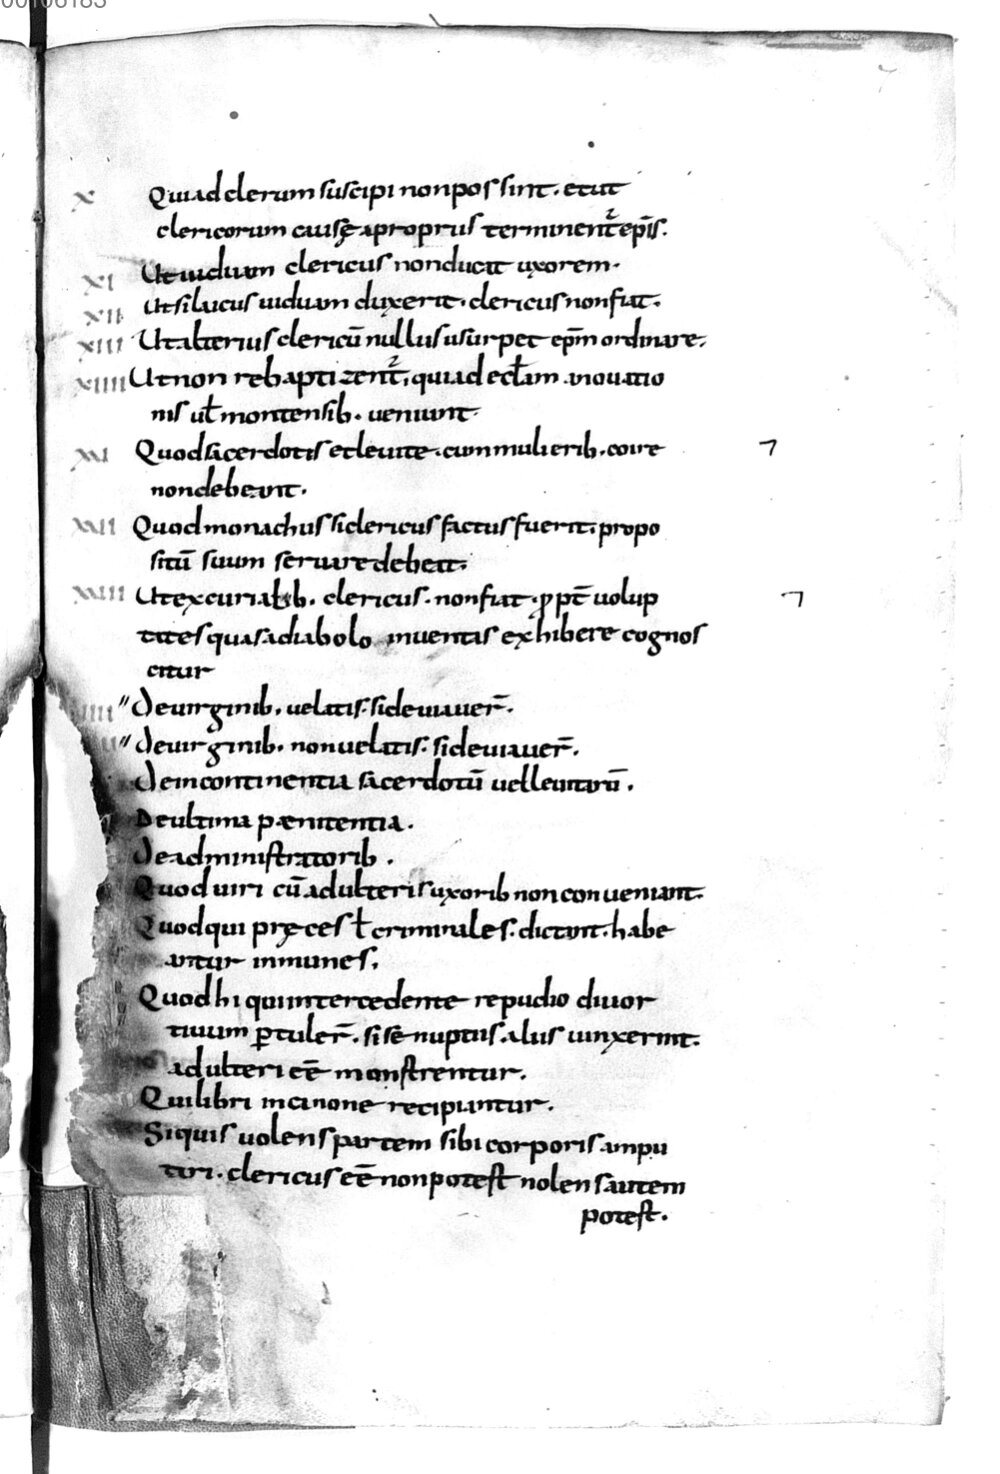 X Qui ad clerum suscipi non possint. et ut
clericorum causę a propriis terminent᷑ epis̄.
XI Ut uiduam clericus non ducat uxorem.
XII Ut si laicus uiduam duxerit. clericus non fiat.
XIII Ut alterius clericū nullus usurpet ep̄m ordinare.
XIIII Ut non rebaptizent᷑, qui ad eccłam a nouatia
nis uł montensib. ueniunt.
XXI Quod sacerdotis et leuite. cum mulierib. coire
non debeant.
XXII Quod monachus si clericus factus fuerit; propo
sitū suum seruare debeat;
XXIII Ut ex curialib. clericus. non fiat. ꝓpt̄ uolup
tates quas a diabolo inuentas exhibere cognos
citur
IIII De uirginib. uelatis. si deuiauer̄.
De uirginib. non uelatis. si deuiauer̄.
De incontinentia sacerdotū uel leuitarū.
De ultima pænitentia.
De administratorib.
Quod uiri cū adulteris uxorib non conueniant.
Quod qui pręces ł criminales. dictant. habe
antur inmunes.
Quod hi qui intercedente repudio diuor
tiuum ꝑtuler̄. si se nuptiis aliis uinxerint.
adulteri eē monstrentur.
Qui libri in canone recipiantur.
Si quis uolens partem sibi corporis ampu
tari. clericus eē non potest nolens autem
potest.